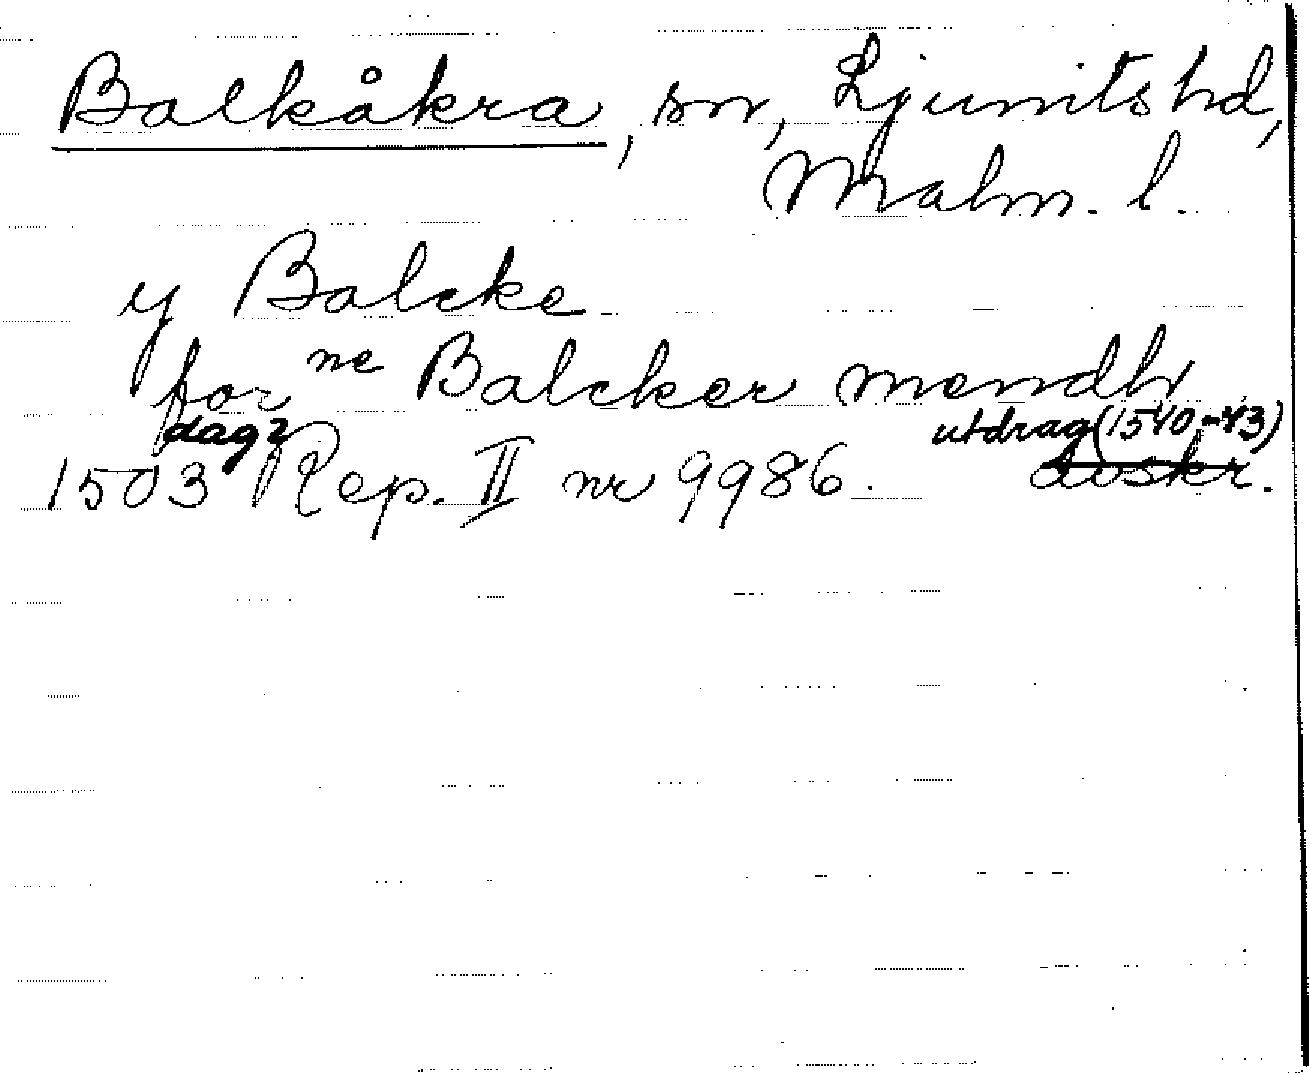 Balkåkra, sn, Ljunits hd,
Malm. l.
y Balcke
for ne Balcker mendh
dag? utdrag (1540-43)
1503 Rep. II nr 9986. avskr.